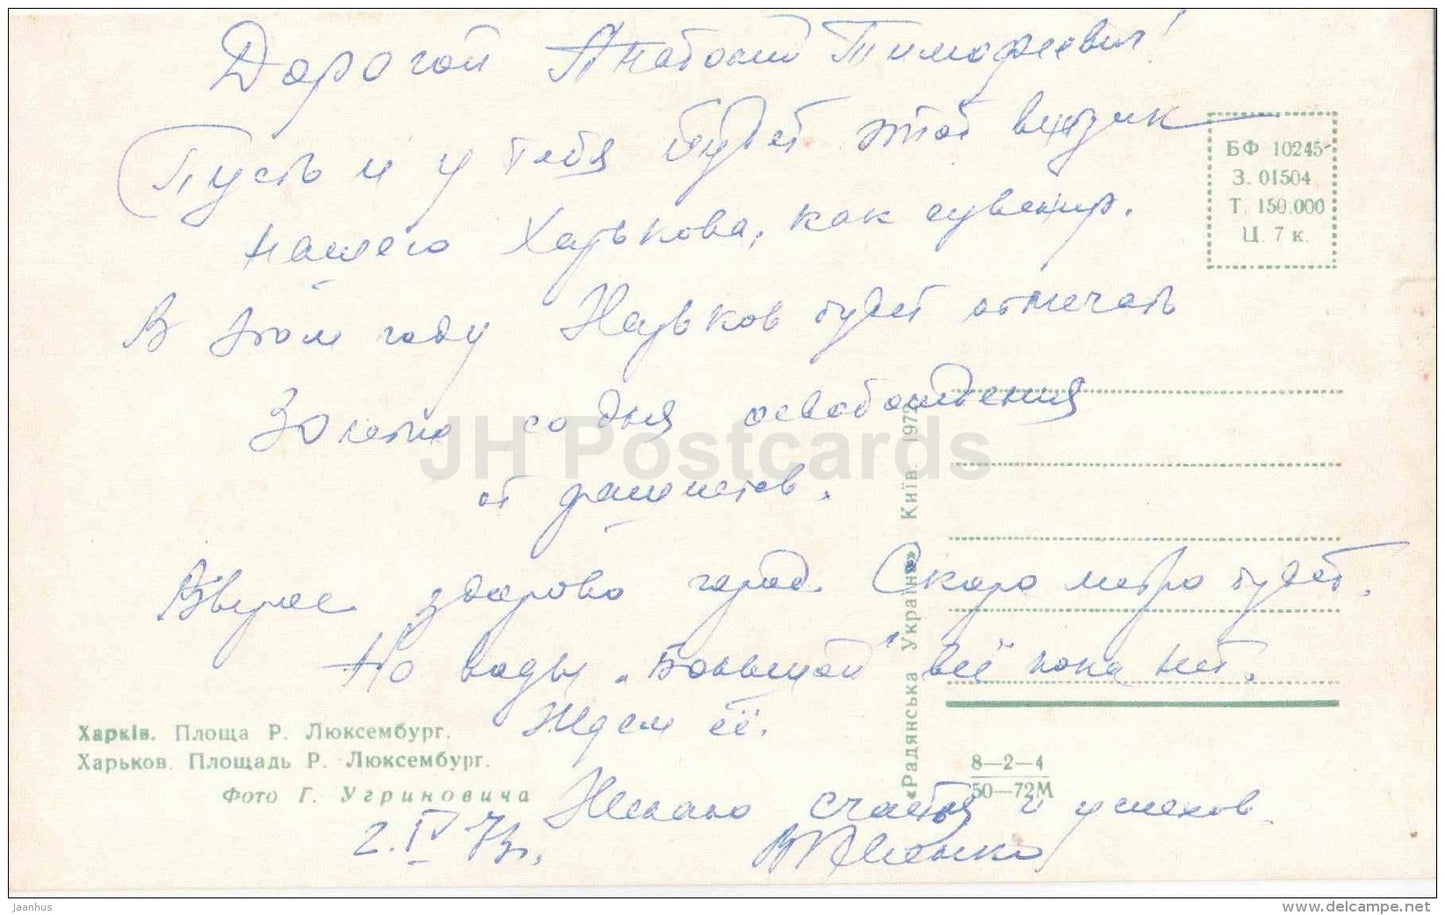 Дорогой Анатолий Тимофеевич!
Пусть и у тебя будет этот видик
нашего Харькова, как сувенир.
В этом году Харьков будет отмечать
30 летие со дня освобождения
от фашистов.
здорово город. Скоро метро будет.
Но воды "Большой" всё пока нет.
Ждем её.
Желаю счастья и успехов.
2.IV 73г.
БФ 10245
З. 01504
Т. 150.000
Ц. 7 к.
«Радянська Україна» Київ 1972
Харків. Площа Р. Люксембург.
Харьков. Площадь Р. Люксембург.
Фото Г. Угриновича
8—2—4
50—72М
JH Postcards
jaanhus
www.delcampe.net